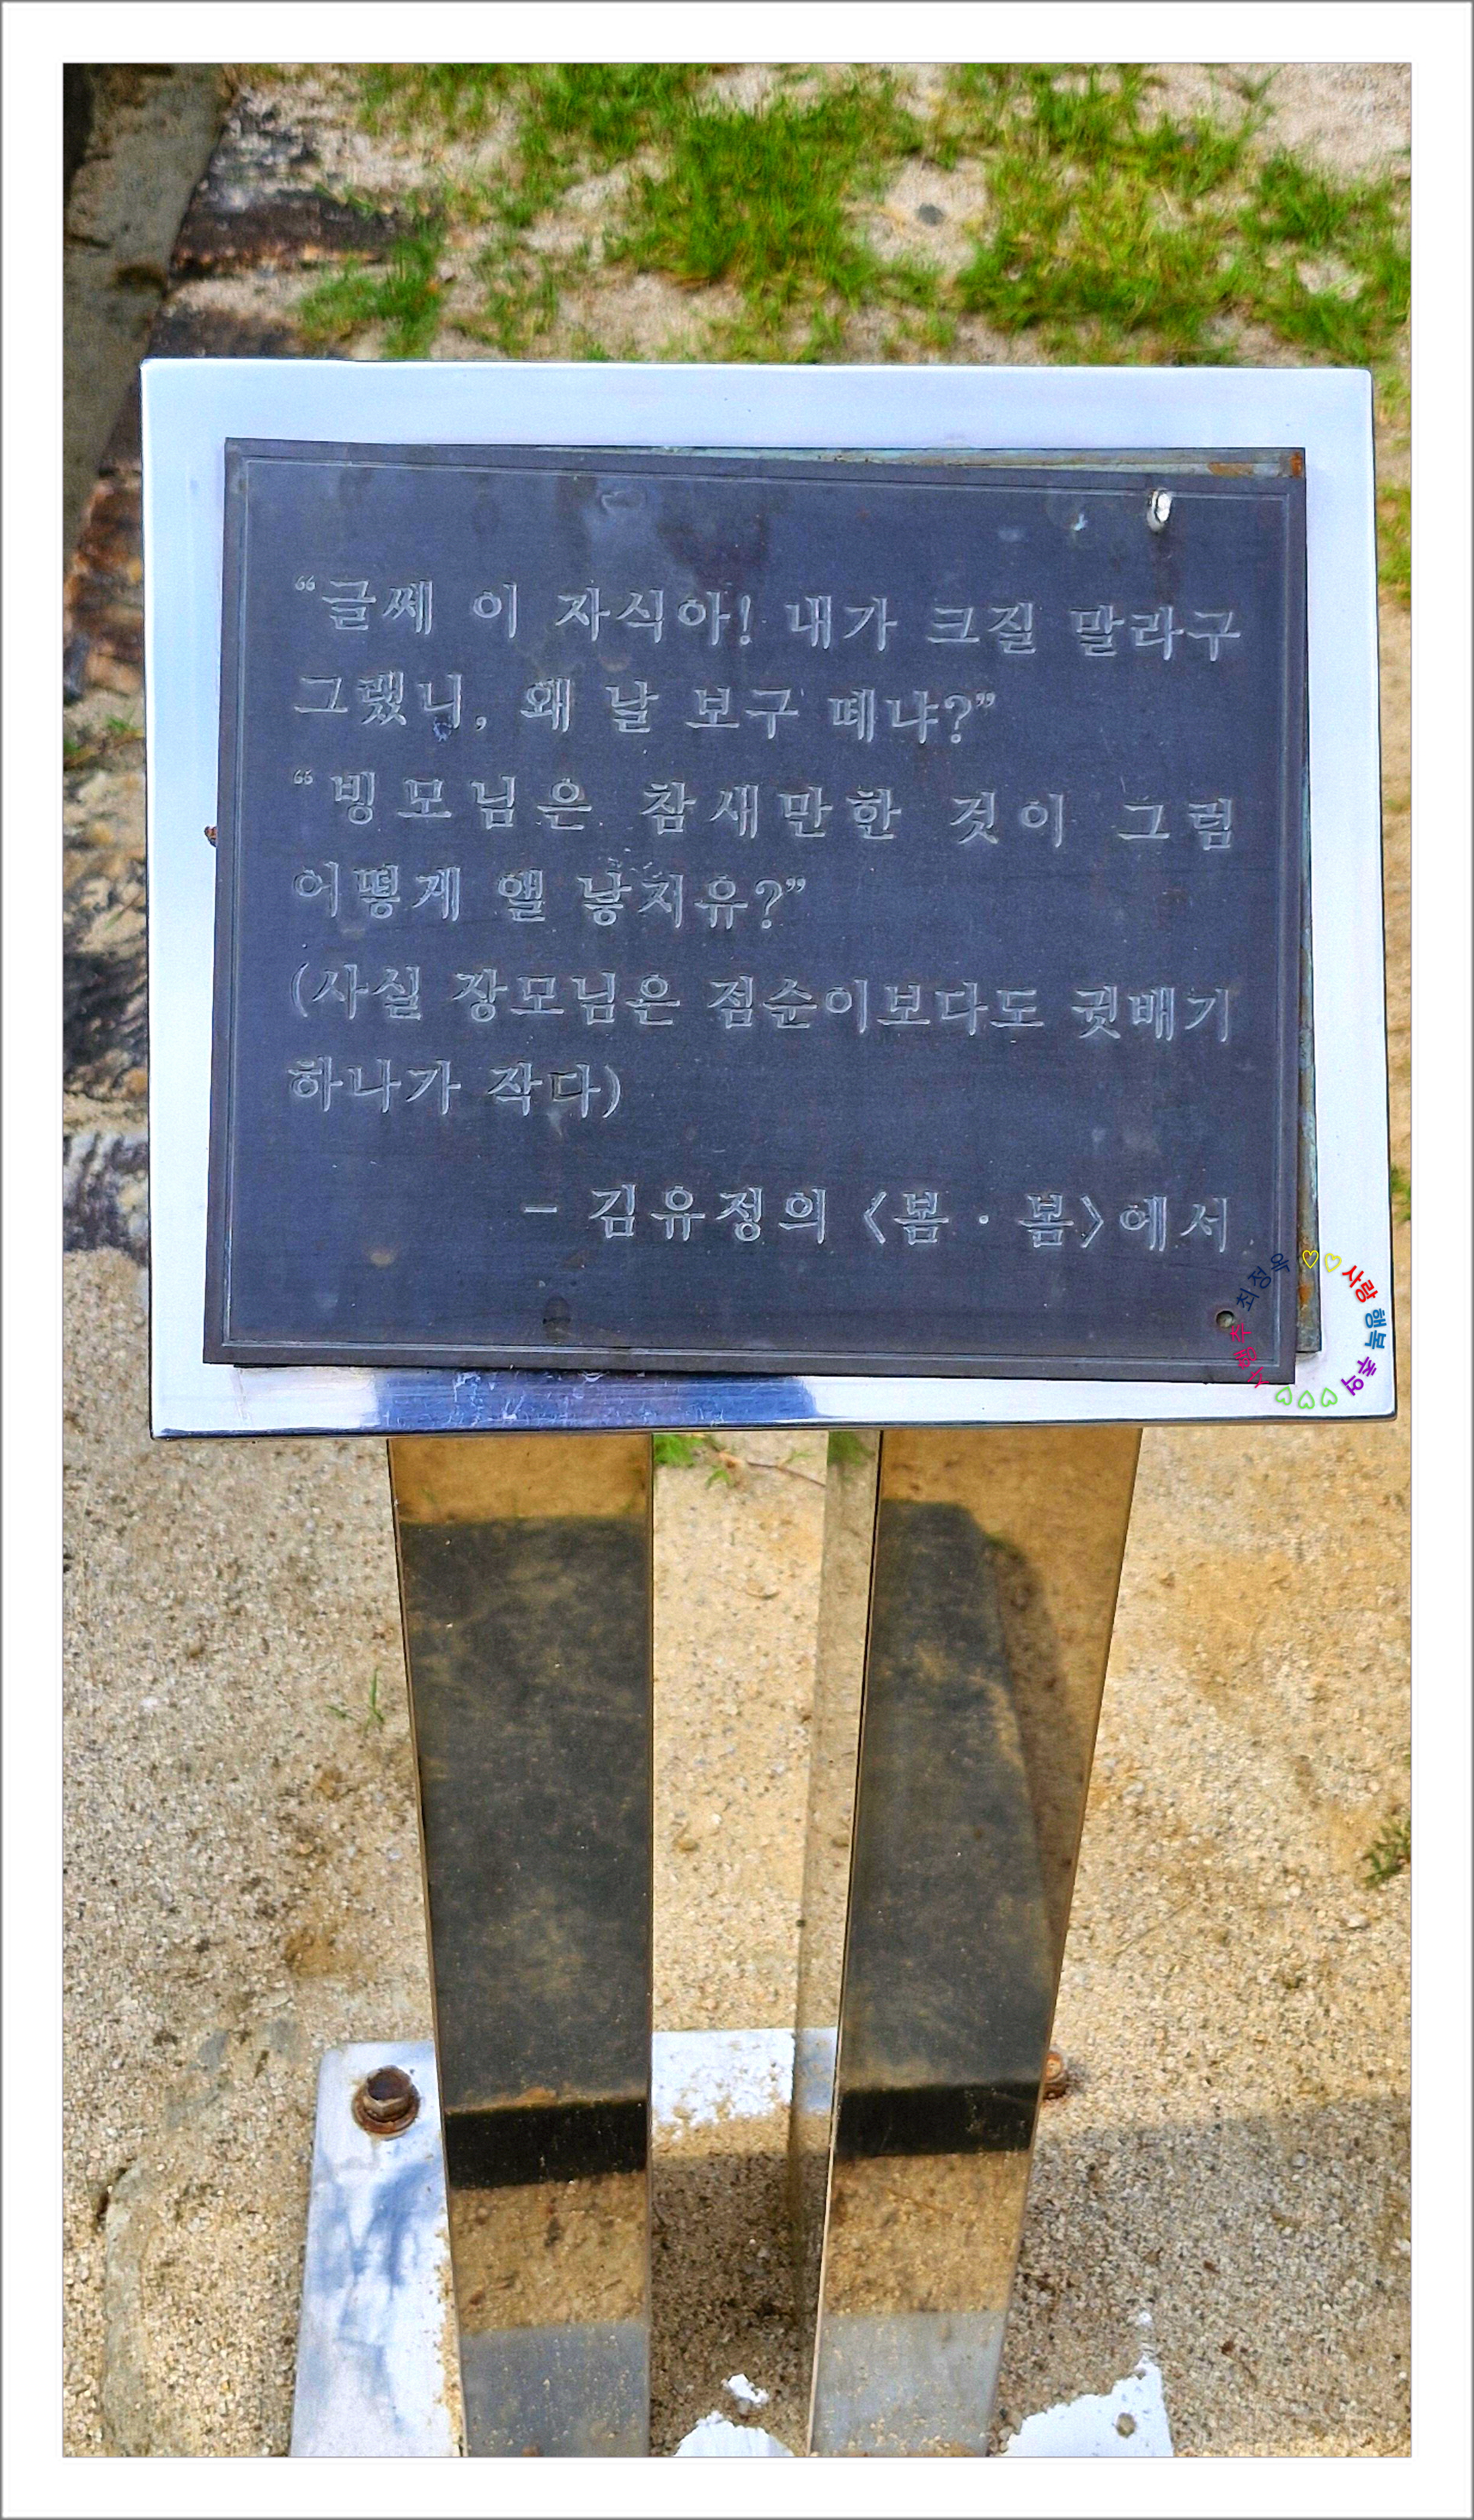 “글쎄 이 자식아! 내가 크질 말라구
그랬니, 왜 날 보구 떼냐?”
“빙모님은 참새만한 것이 그럼
어떻게 앨 낳지유?”
(사실 장모님은 점순이보다도 귓배기
하나가 작다)
- 김유정의 〈봄 · 봄〉에서
최정옥 ♡♡ 사랑 행복 추억 ♡♡♡